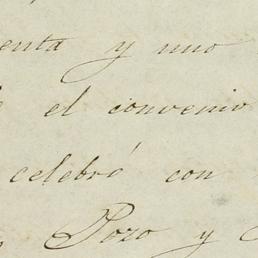 enta y uno
el convenio
celebró con
Pozo y